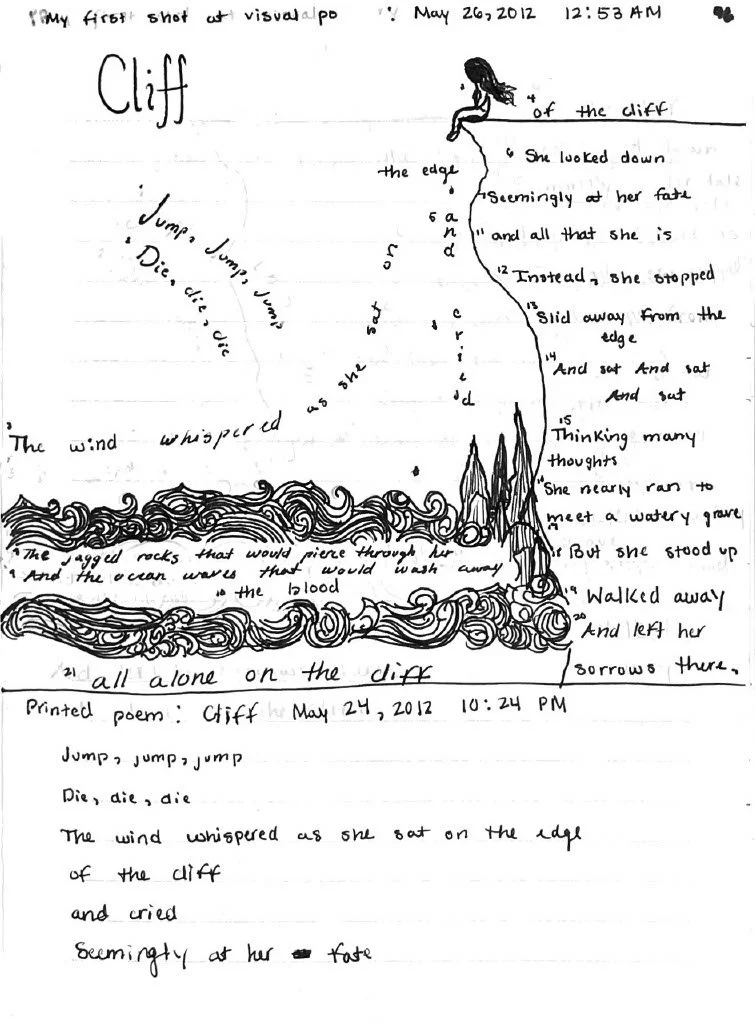 My first shot at visual po May 26, 2012 12:53 AM 96
Cliff
1 Jump, Jump, Jump
2 Die, die, die
3 The wind whispered as she sat on
the edge
4 of the cliff
5 and
cried
6 She looked down
7 Seemingly at her fate
8 The jagged rocks that would pierce through her
9 And the ocean waves that would wash away
10 the blood
11 and all that she is
12 Instead, she stopped
13 Slid away from the
edge
14 And sat And sat
And sat
15 Thinking many
thoughts
16 She nearly ran to
17 meet a watery grave
18 But she stood up
19 Walked away
20 And left her
sorrows there,
21 all alone on the cliff
Printed poem: Cliff May 24, 2012 10:24 PM
Jump, jump, jump
Die, die, die
The wind whispered as she sat on the edge
of the cliff
and cried
Seemingly at her fate